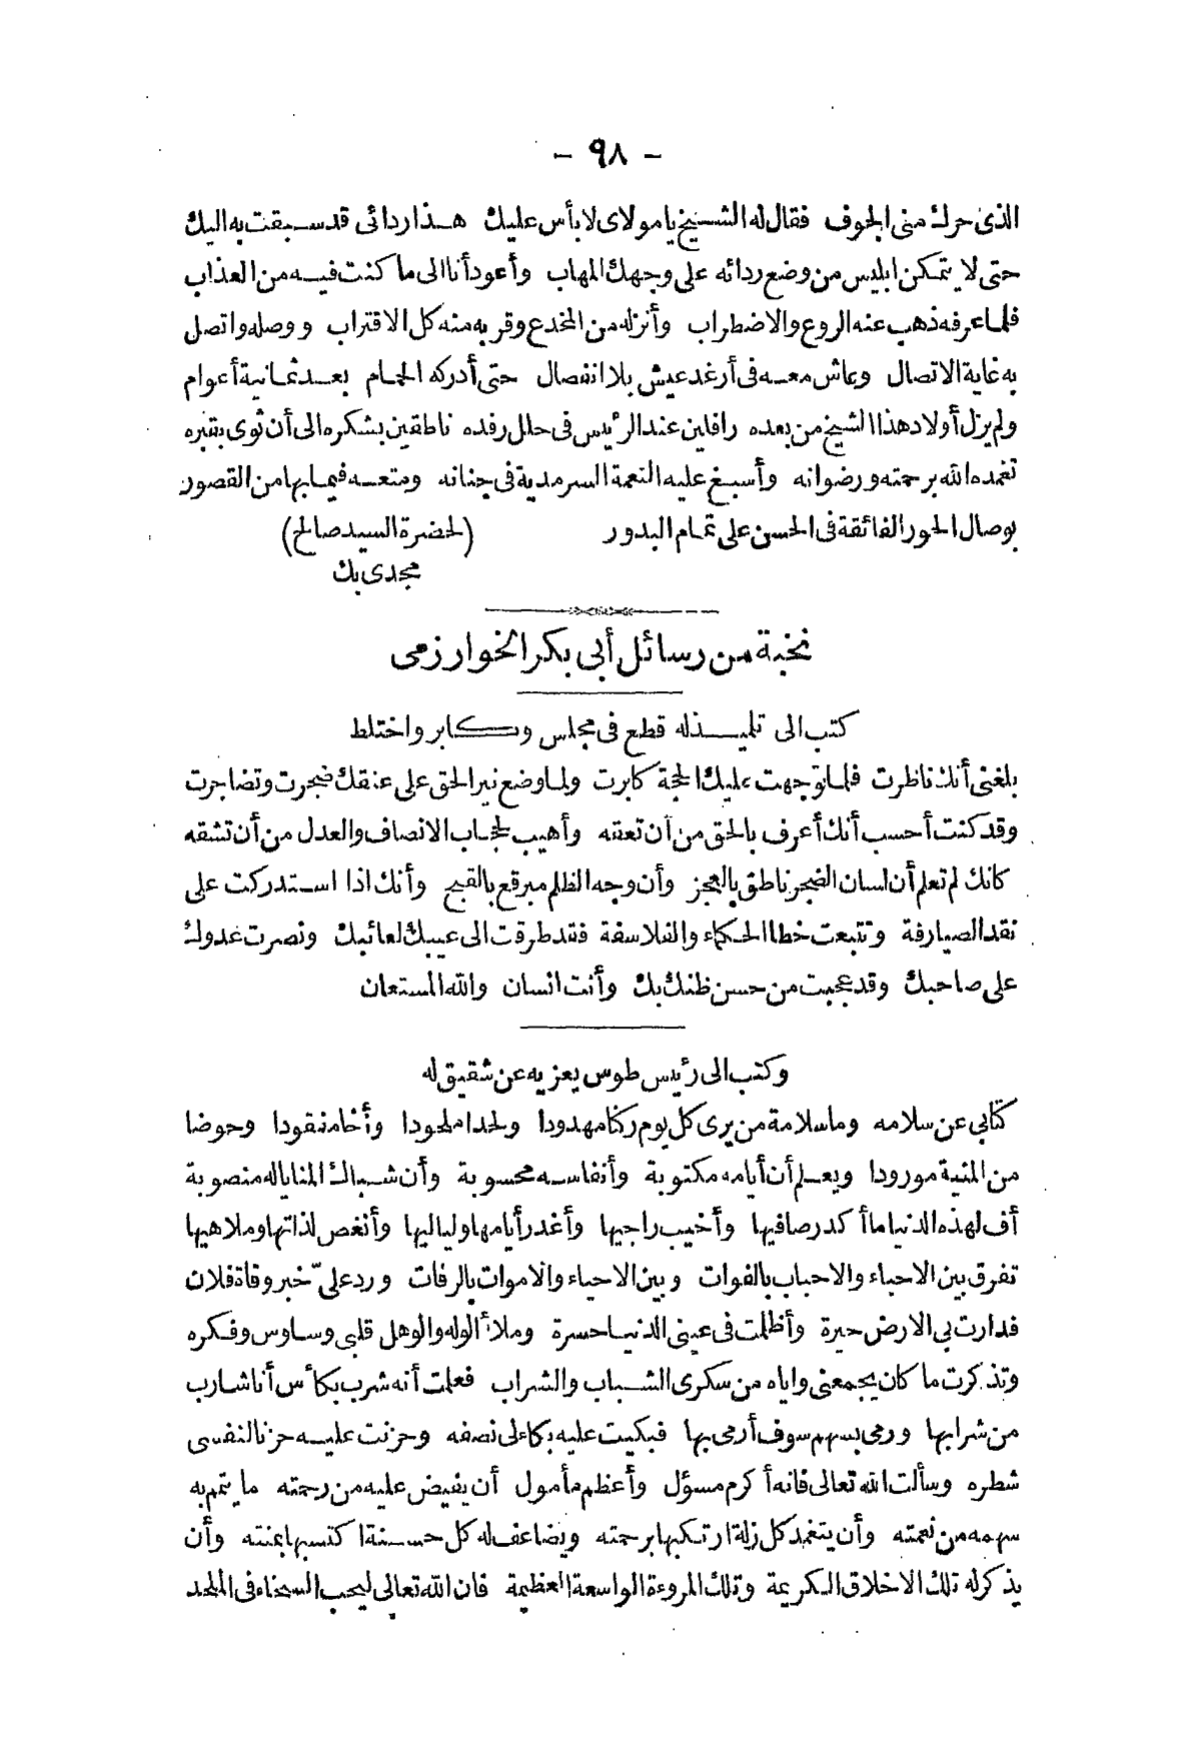 - ٩٨ -
الذى حرك منى الجوف فقال له الشيخ يا مولاى لا بأس عليك هذا ردائى قد سبقت به اليك
حتى لا يتمكن ابليس من وضع ردائه على وجهك المهاب وأعود أنا الى ما كنت فيه من العذاب
فلما عرفه ذهب عنه الروع والاضطراب وأنزله من المخدع وقربه منه كل الاقتراب ووصله واتصل
به غاية الاتصال وعاش معه فى أرغد عيش بلا انفصال حتى أدركه الحمام بعد ثمانية أعوام
ولم يزل أولاد هذا الشيخ من بعده رافلين عند الرئيس فى حلل رفده ناطقين بشكره الى أن ثوى بقبره
تغمده الله برحمته ورضوانه وأسبغ عليه النعمة السرمدية فى جنانه ومتعه فيما بها من القصور
بوصال الحور الفائقة فى الحسن على تمام البدور (لحضرة السيد صالح)
مجدى بك
نخبة من رسائل أبى بكر الخوارزمى
كتب الى تلميذ له قطع فى مجلس وكابر واختلط
بلغنى أنك ناظرت فلما توجهت عليك الحجة كابرت ولما وضع نير الحق على عنقك ضجرت وتضاجرت
وقد كنت أحسب أنك أعرف بالحق من أن تعقه وأهيب لحجاب الانصاف والعدل من أن تشقه
كانك لم تعلم أن لسان الضجر ناطق بالعجز وأن وجه الظلم مبرقع بالقبح وأنك اذا استدركت على
نقد الصيارفة وتتبعت خطا الحكماء والفلاسفة فقد طرقت الى عيبك لعائبك ونصرت عدوك
على صاحبك وقد عجبت من حسن ظنك بك وأنت انسان والله المستعان
وكتب الى رئيس طوس يعزيه عن شقيق له
كتابى عن سلامه وما سلامة من يرى كل يوم ركنا مهدودا ولحدا ملحودا وأخا مفقودا وحوضا
من المنية مورودا ويعلم أن أيامه مكتوبة وأنفاسه محسوبة وأن شباك المنايا له منصوبة
أف لهذه الدنيا ما أكدر صافيها وأخيب راجيها وأغدر أيامها ولياليها وأنغص لذاتها وملاهيها
تفرق بين الاحباء والاحباب بالفوات وبين الاحياء والاموات بالرفات ورد علىّ خبر وفاة فلان
فدارت بى الارض حيرة وأظلمت فى عينى الدنيا حسرة وملأ الوله والوهل قلبى وساوس وفكره
وتذكرت ما كان يجمعنى واياه من سكرى الشباب والشراب فعلمت أنه شرب بكأس أنا شارب
من شرابها ورمى بسهم سوف أرمى بها فبكيت عليه بكاء لى نصفه وحزنت عليه حزنا لنفسى
شطره وسألت الله تعالى فانه أكرم مسؤل وأعظم مأمول أن يفيض عليه من رحمته ما يتم به
سهمه من نعمته وأن يتغمد كل زلة ارتكبها برحمته ويضاعف له كل حسنة اكتسبها بمنته وأن
يذكر له تلك الاخلاق الكريمة وتلك المروءة الواسعة العظيمة فان الله تعالى ليحب السخاء فى الملحد